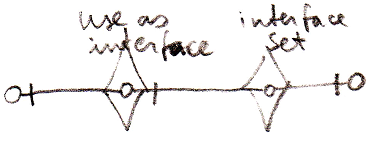 use as
interface
interface
set